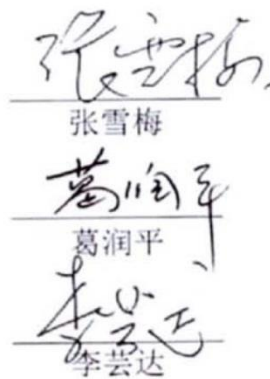 张雪梅
张雪梅
葛润平
葛润平
李芸达
李芸达